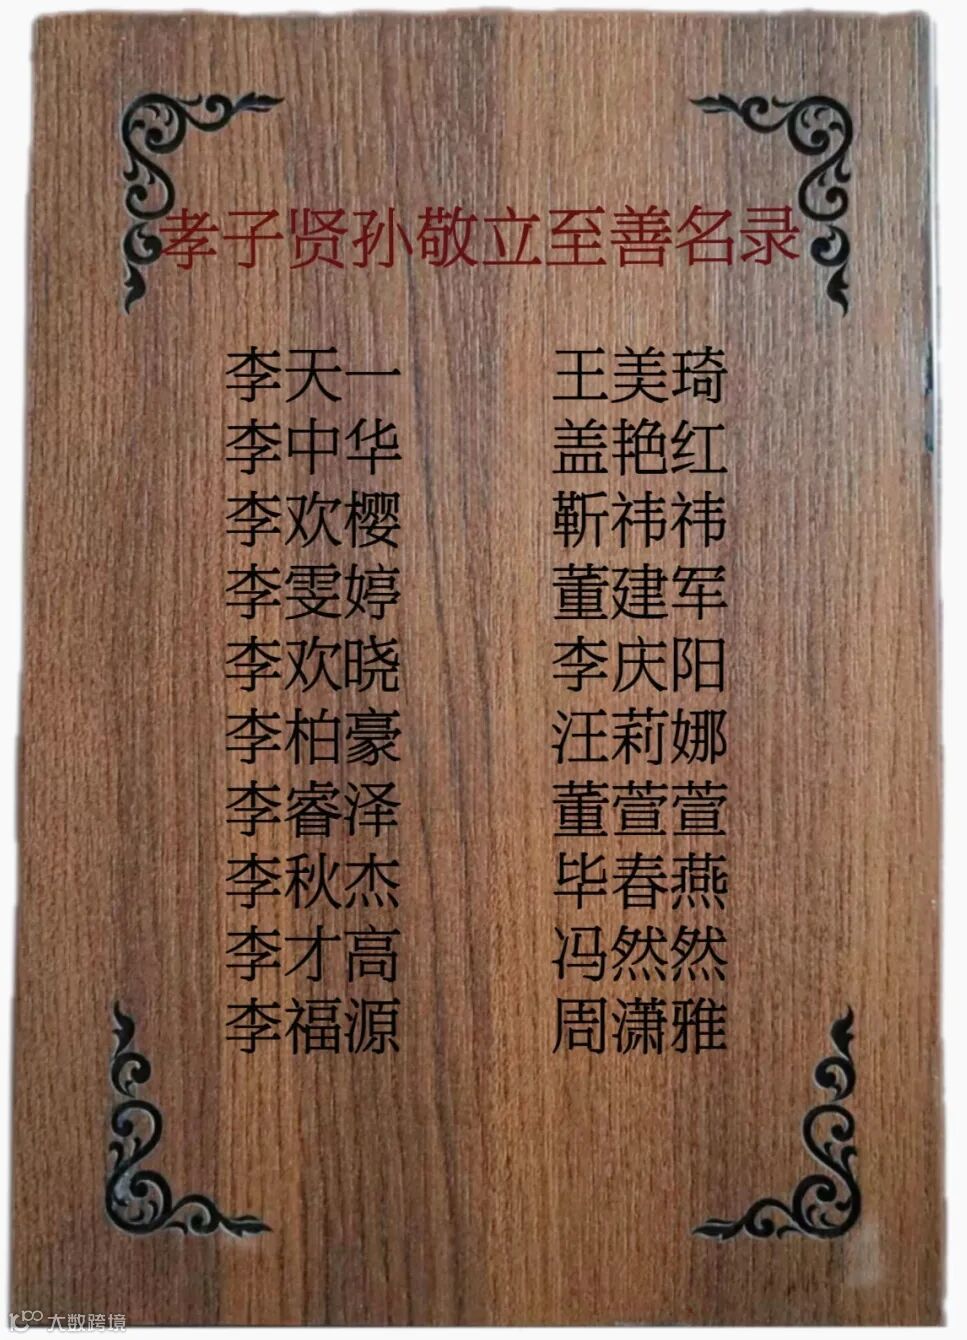 孝子贤孙敬立至善名录
李天一 王美琦
李中华 盖艳红
李欢樱 靳祎祎
李雯婷 董建军
李欢晓 李庆阳
李柏豪 汪莉娜
李睿泽 董萱萱
李秋杰 毕春燕
李才高 冯然然
李福源 周潇雅
大数跨境